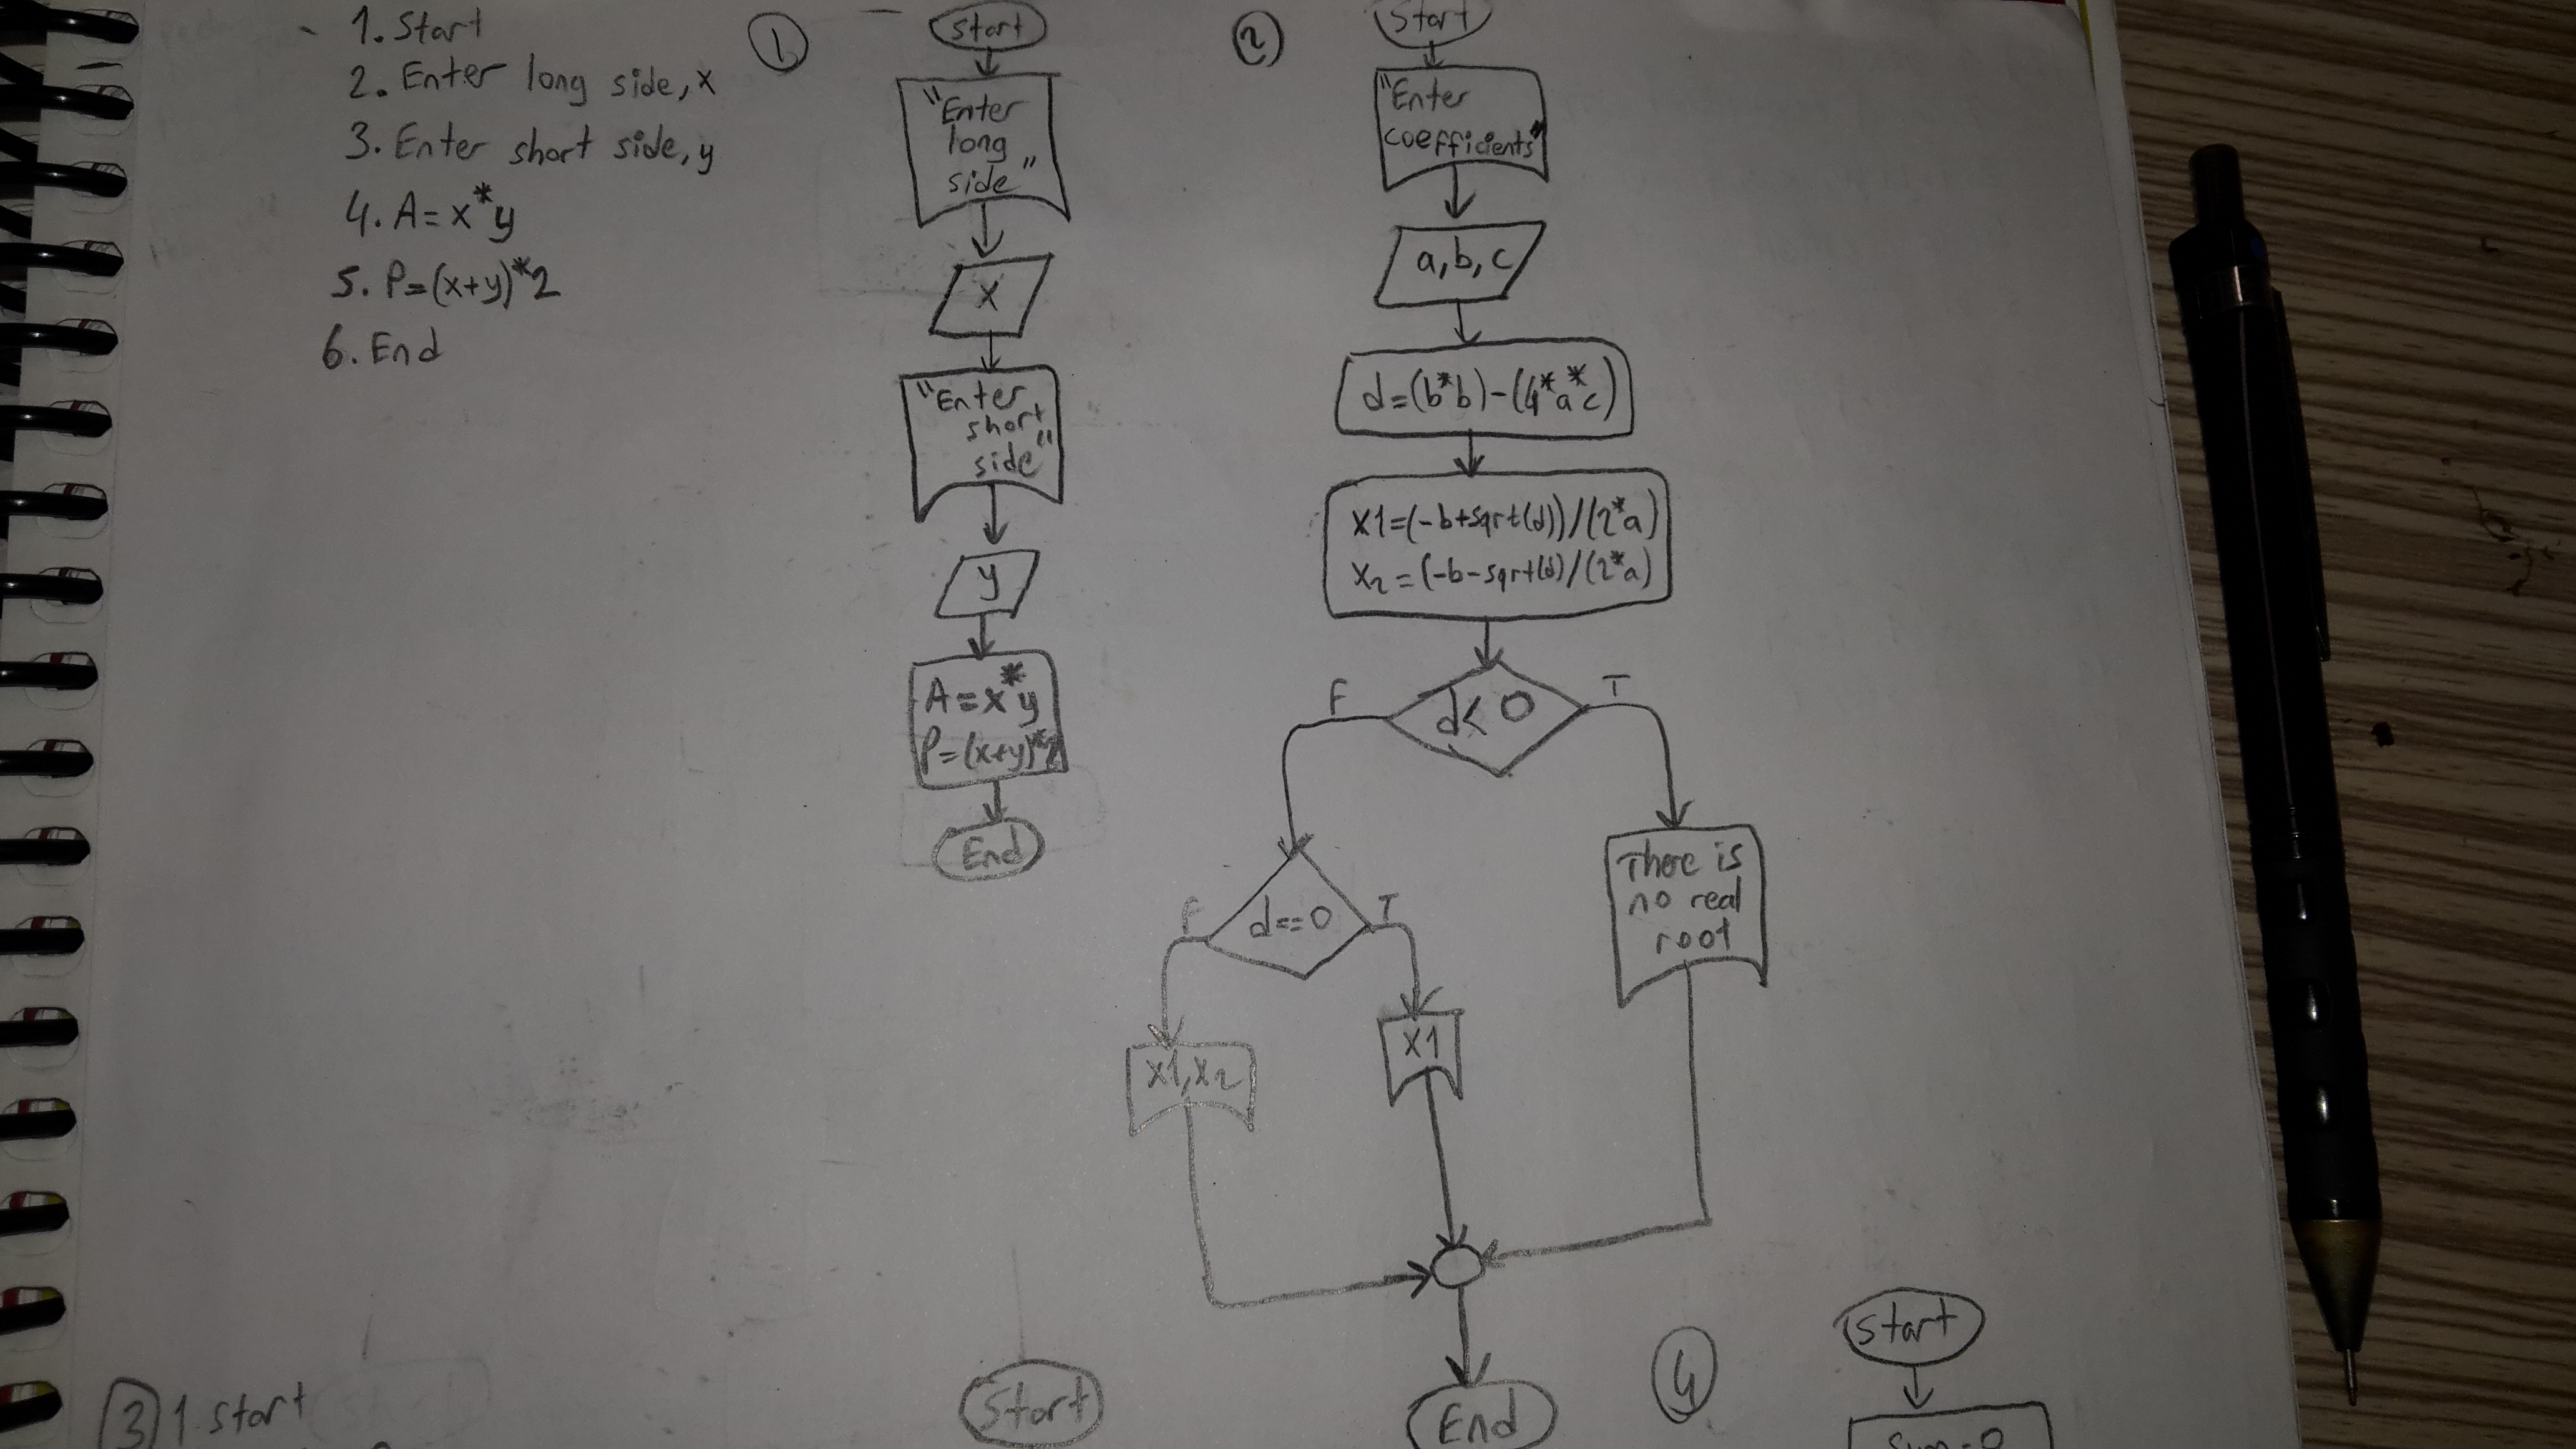 1. Start
2. Enter long side, x
3. Enter short side, y
4. A=x*y
5. P=(x+y)*2
6. End
1
Start
"Enter
long
side"
x
"Enter
short
side"
y
A=x*y
P=(x+y)*2
End
2
Start
"Enter
coefficients"
a,b,c
d=(b*b)-(4*a*c)
x1=(-b+sqrt(d))/(2*a)
x2=(-b-sqrt(d)/(2*a)
d<0
F
T
d==0
F
T
There is
no real
root
x1,x2
x1
End
3 1. Start
Start
4
Start
Sum=0